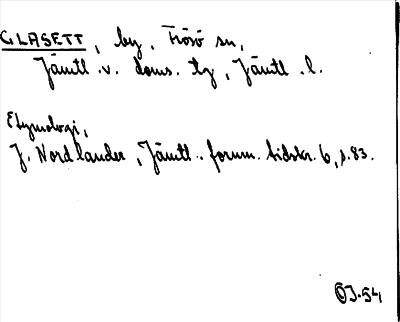 GLASETT, by, Frösö sn,
Jämtl. v. doms. tg, Jämtl. l.
Etymologi,
J. Nordlander, Jämtl. fornm. tidskr. 6, s. 83.
ÖJ-54